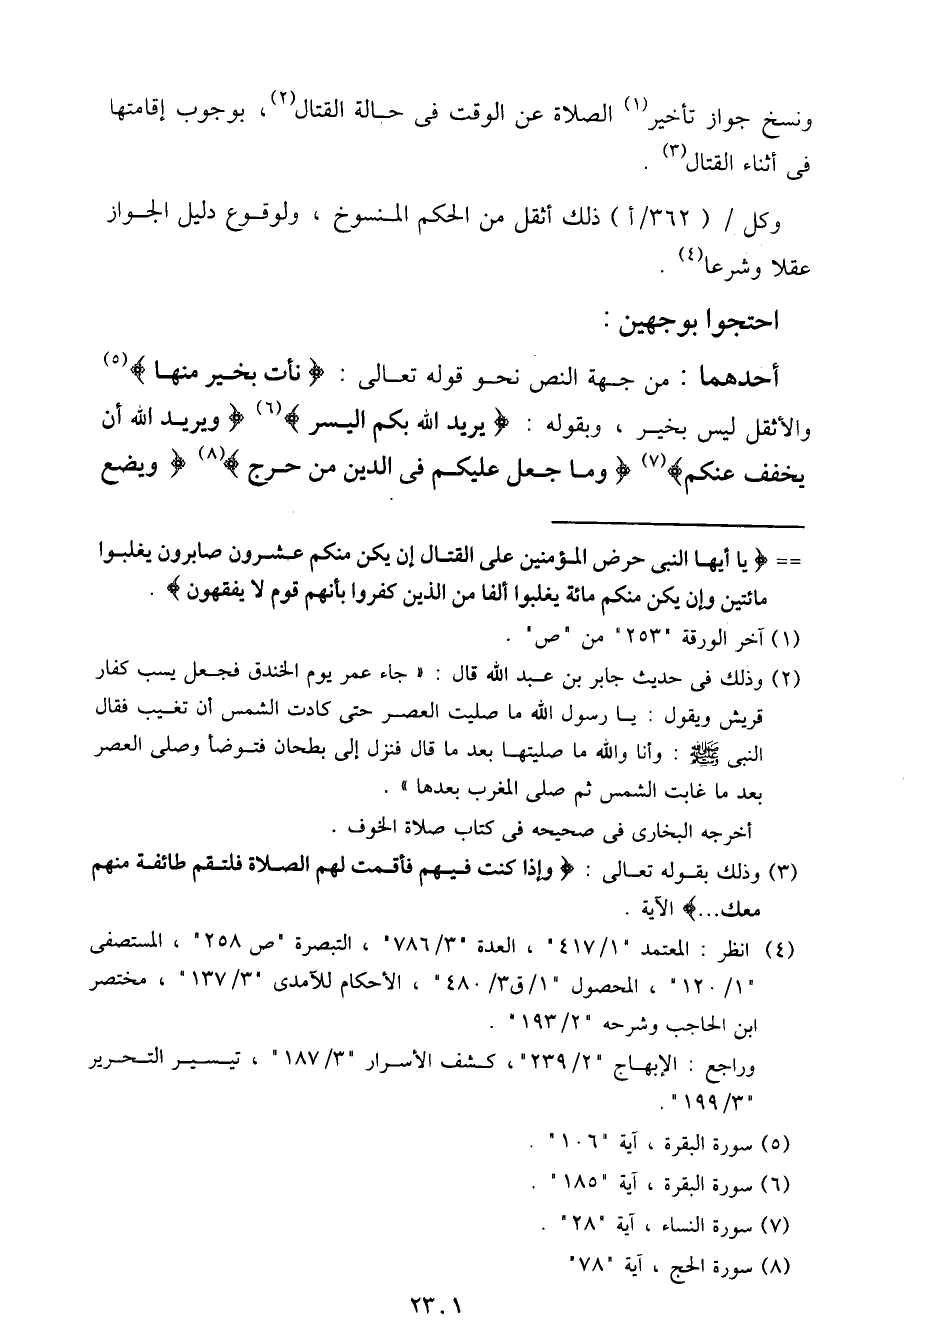 ونسخ جواز تأخير(١) الصلاة عن الوقت فى حالة القتال(٢)، بوجوب إقامتها
فى أثناء القتال(٣) .
وكل / ( ٣٦٢/أ ) ذلك أثقل من الحكم المنسوخ ، ولوقوع دليل الجواز
عقلا وشرعا(٤) .
احتجوا بوجهين :
أحدهما : من جهة النص نحو قوله تعالى : ﴿ نأت بخير منها ﴾(٥)
والأثقل ليس بخير ، وبقوله : ﴿ يريد الله بكم اليسر ﴾(٦) ﴿ ويريد الله أن
يخفف عنكم﴾(٧) ﴿ وما جعل عليكم فى الدين من حرج ﴾(٨) ﴿ ويضع
== ﴿ يا أيها النبى حرض المؤمنين على القتال إن يكن منكم عشرون صابرون يغلبوا
مائتين وإن يكن منكم مائة يغلبوا ألفا من الذين كفروا بأنهم قوم لا يفقهون ﴾ .
(١) آخر الورقة "٢٥٣" من "ص" .
(٢) وذلك فى حديث جابر بن عبد الله قال : « جاء عمر يوم الخندق فجعل يسب كفار
قريش ويقول : يا رسول الله ما صليت العصر حتى كادت الشمس أن تغيب فقال
النبى ﷺ : وأنا والله ما صليتها بعد ما قال فنزل إلى بطحان فتوضأ وصلى العصر
بعد ما غابت الشمس ثم صلى المغرب بعدها » .
أخرجه البخارى فى صحيحه فى كتاب صلاة الخوف .
(٣) وذلك بقوله تعالى : ﴿ وإذا كنت فيهم فأقمت لهم الصلاة فلتقم طائفة منهم
معك...﴾ الآية .
(٤) انظر : المعتمد "٤١٧/١" ، العدة "٧٨٦/٣" ، التبصرة "ص ٢٥٨" ، المستصفى
"١٢٠/١" ، المحصول "١/ق٤٨٠/٣" ، الأحكام للآمدى "١٣٧/٣" ، مختصر
ابن الحاجب وشرحه "١٩٣/٢" .
وراجع : الإبهاج "٢٣٩/٢"، كشف الأسرار "١٨٧/٣" ، تيسير التحرير
"١٩٩/٣" .
(٥) سورة البقرة ، آية "١٠٦" .
(٦) سورة البقرة ، آية "١٨٥" .
(٧) سورة النساء ، آية "٢٨" .
(٨) سورة الحج ، آية "٧٨"
٢٣٠١